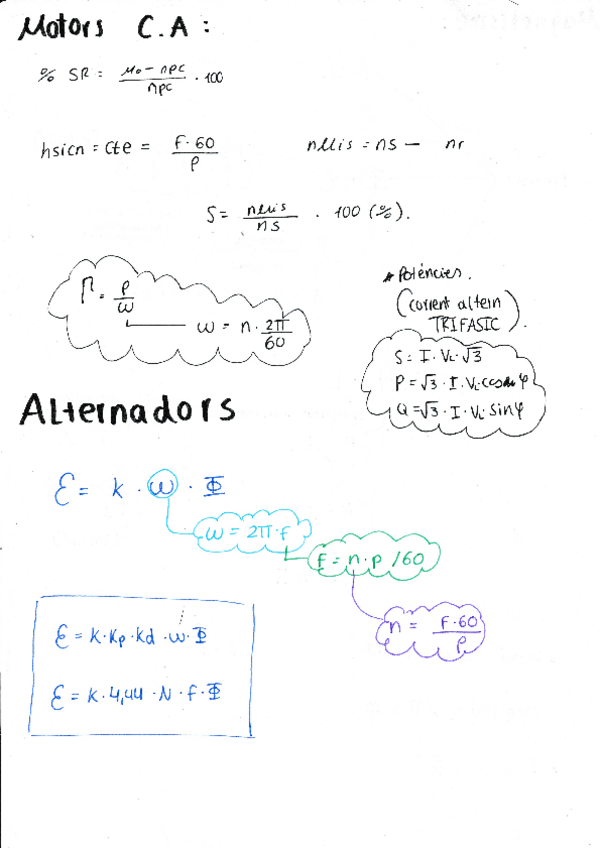 Motors C.A:
% SR = (n0 - npc) / npc · 100
nsicn = cte = F·60 / P
nllis = ns - nr
S = nllis / ns · 100 (%).
Γ = P / ω
ω = n · 2π / 60
* Potències.
(corrent altern)
TRIFASIC
S = I · VL · √3
P = √3 · I · VL · cos φ
Q = √3 · I · VL · sin φ
Alternadors
ℰ = k · ω · Φ
ω = 2π · f
f = n · p / 60
n = F·60 / P
ℰ = K · Kp · kd · ω · Φ
ℰ = K · 4,44 · N · f · Φ